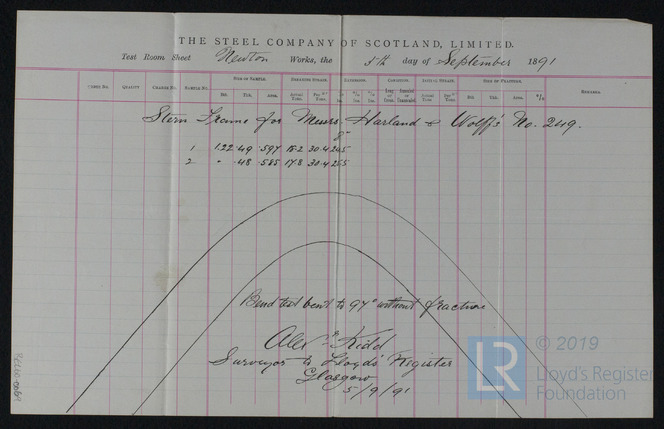 THE STEEL COMPANY OF SCOTLAND, LIMITED.
Test Room Sheet Newton Works, the 5th day of September 1891
SIZE OF SAMPLE. BREAKING STRAIN. EXTENSION. INITIAL STRAIN. SIZE OF FRACTURE.
QUALITY CHARGE No. SAMPLE No. Brd. Thk. Area. Actual Tons Brd. Thk. Area. REMARKS.
Stern Frame for Messrs. Harland & Wolff's No. 249.
8"
1 1.22 .49 .597 18.2 30.4 24.5
2 " .48 .585 17.8 30.4 25.5
Bend test bent to 97° without fracture
Alexr Kidd
Surveyor to Lloyds' Register
Glasgow
5/9/91
LR © 2019
Lloyd's Register
Foundation